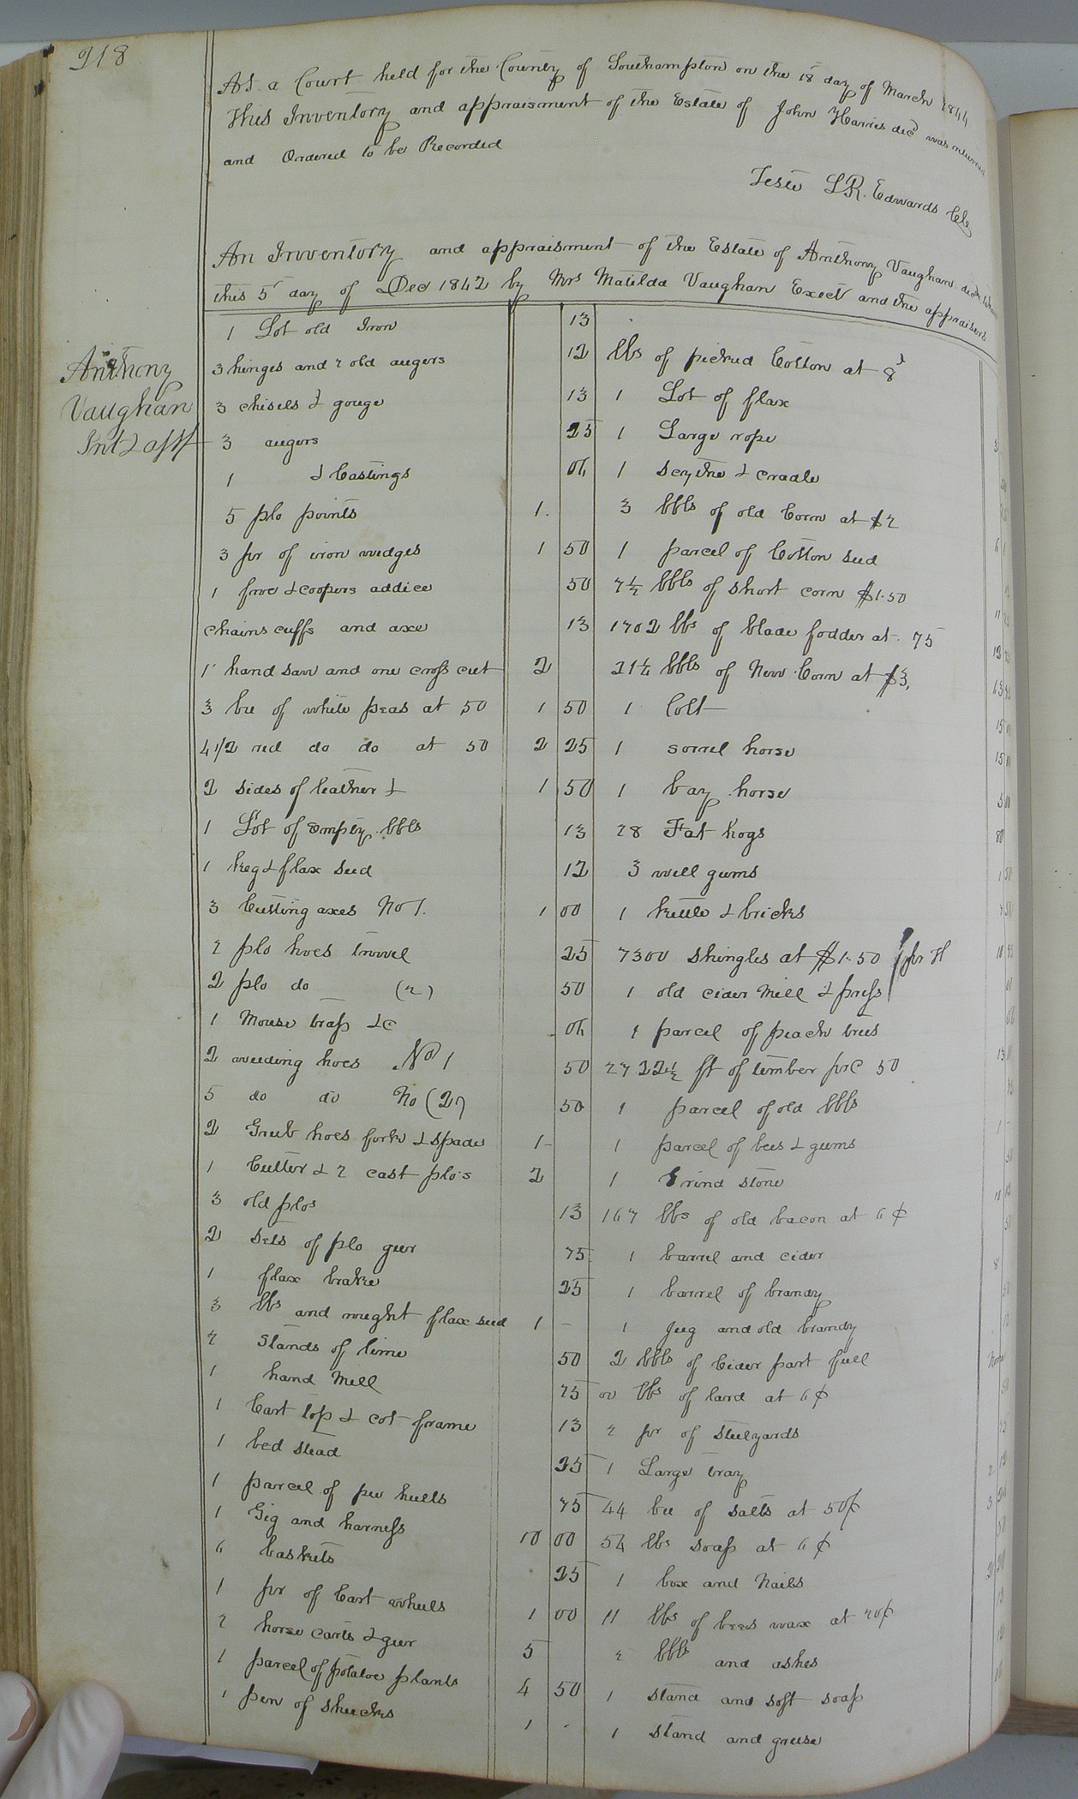 218
At a Court held for the County of Southampton on the 18 day of March 1844
This Inventory and appraisment of the Estate of John Harris decd was returned
and Ordered to be Recorded
Teste L R. Edwards Clk
An Inventory and appraisment of the Estate of Anthony Vaughan decd
this 5 day of Dec 1842 by Mrs Matilda Vaughan Exect and the appraisers
Anthony
Vaughan
Invt & appt
1 Lot old Iron 13
3 hinges and 2 old augers 12
3 chisels & gouge 13
3 augers 25
1 & Castings 06
5 plo points 1.
3 pr of iron wedges 1 50
1 froe & coopers addice 50
chains cuffs and axe 13
1 hand saw and one cross cut 2
3 bu of white peas at 50 1 50
4 1/2 red do do at 50 2 25
2 sides of leather & 1 50
1 Lot of empty bbls 13
1 keg & flax seed 12
3 Cutting axes No 1. 1 00
2 plo hoes trowel 25
2 plo do (2) 50
1 Mouse trap &c 06
2 weeding hoes No 1 50
5 do do No (2) 50
2 Grub hoes fork & spade 1 -
1 Cutter & 2 cast plo's 2
3 old plos 13
2 sets of plo geer 75
1 flax brake 25
3 lbs and rought flax seed 1 -
2 stands of lime 50
1 hand Mill 75
1 Cart top & cot frame 13
1 bed stead 25
1 parcel of pea hulls 75
1 Gig and harness 10 00
6 baskets 25
1 pr of Cart wheels 1 00
2 horse carts & geer 5
1 parcel of potatoe plants 4 50
1 pen of shucks 1 -
lbs of picked Cotton at 8
1 Lot of flax
1 Large rope
1 scythe & cradle
3 bbls of old Corn at $2
1 parcel of Cotton seed
7 1/2 bbls of short corn $1.50
1702 lbs of blade fodder at 75
21 1/2 bbls of New Corn at $3,
1 Colt
1 sorrel horse
1 bay horse
28 Fat hogs
3 well gums
1 kettle & bricks
7300 shingles at $1.50 pr M
1 old cider Mill & press
1 parcel of peach trees
2722 1/2 ft of timber prC 50
1 parcel of old bbls
1 parcel of bees & gums
1 Grind stone
167 lbs of old bacon at 6 ¢
1 barrel and cider
1 barrel of brandy
1 jug and old brandy
2 bbls of Cider part full
lbs of lard at 6 ¢
2 pr of steelyards
1 Large tray
44 bu of salts at 50¢
54 lbs soap at 6 ¢
1 box and Nails
11 lbs of bees wax at 20¢
2 bbls and ashes
1 stand and soft soap
1 stand and grease